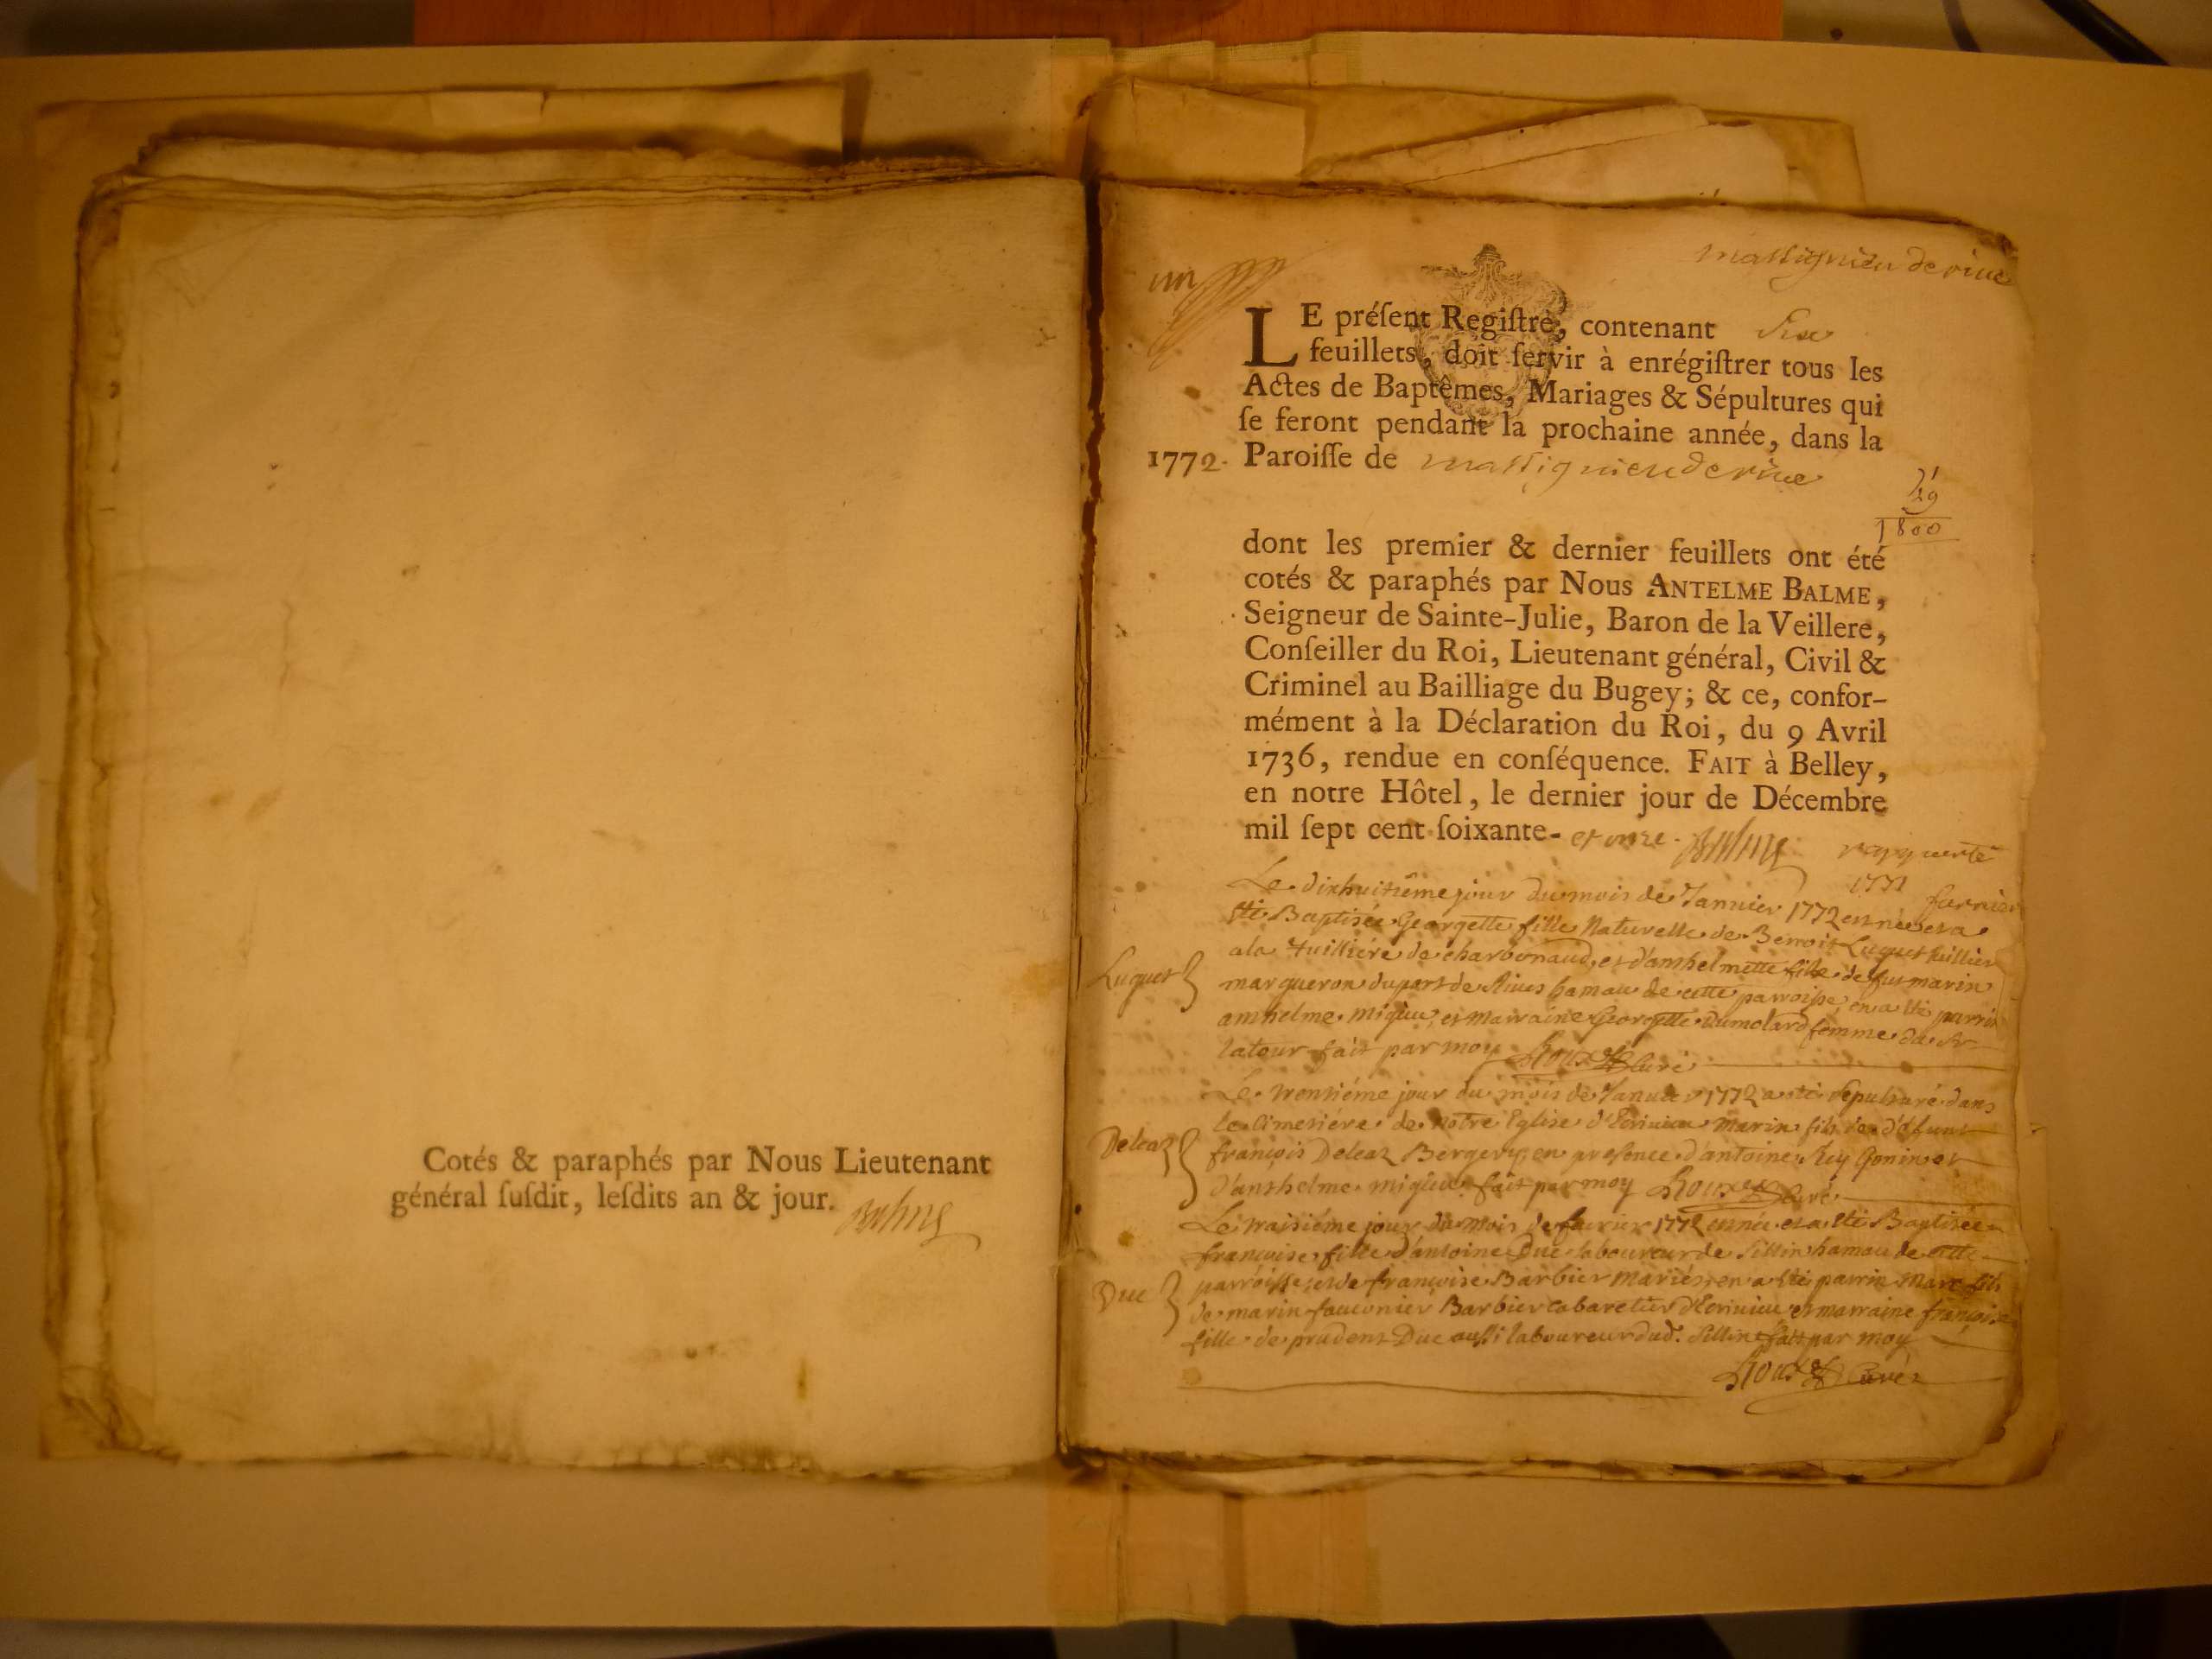 Cotés & paraphés par Nous Lieutenant
général ſuſdit, leſdits an & jour. Balme
massignieu de rive
un
LE préſent Regiſtre, contenant Six
feuillets, doit ſervir à enrégiſtrer tous les
Actes de Baptêmes, Mariages & Sépultures qui
ſe feront pendant la prochaine année, dans la
1772. Paroiſſe de massignieu de rive
29
1800
dont les premier & dernier feuillets ont été
cotés & paraphés par Nous ANTELME BALME,
Seigneur de Sainte-Julie, Baron de la Veillere,
Conſeiller du Roi, Lieutenant général, Civil &
Criminel au Bailliage du Bugey; & ce, confor-
mément à la Déclaration du Roi, du 9 Avril
1736, rendue en conſéquence. FAIT à Belley,
en notre Hôtel, le dernier jour de Décembre
mil ſept cent ſoixante- et onze. Balme
Le dixhuitiéme jour du mois de Janvier 1772 est née et a
été Baptisée Georgette fille Naturelle de Benoit Luquet tuillier
Luquet
ala tuilliére de charbonaud, et d'anthelmette fille de marin
margueron du port de Rives hamau de cette parroisse, en a été parrin
anthelme migieu, et marraine Georgette Dumolard femme du Sr
latour fait par moy Roux Curé
Le trentiéme jour du mois de Janvier 1772 a été sepulturé dans
le Cimetiére de notre Eglise marin fils de défunt
Deleaz
françois Deleaz Berger, en presence d'antoine Rey Gonin et
d'anthelme migieu fait par moy Roux Curé
Le traisiéme jour du mois de favrier 1772 est née et a été Baptisée
francoise fille d'antoine Duc laboureur de Sillin hamau de cette
Duc
parroisse, et de françoise Barbier mariés, en a été parrin Marc fils
de marin fauconier Barbier cabaretier et marraine françoise
fille de prudent Duc aussi laboureur dud. Sillin fait par moy
Roux Curé